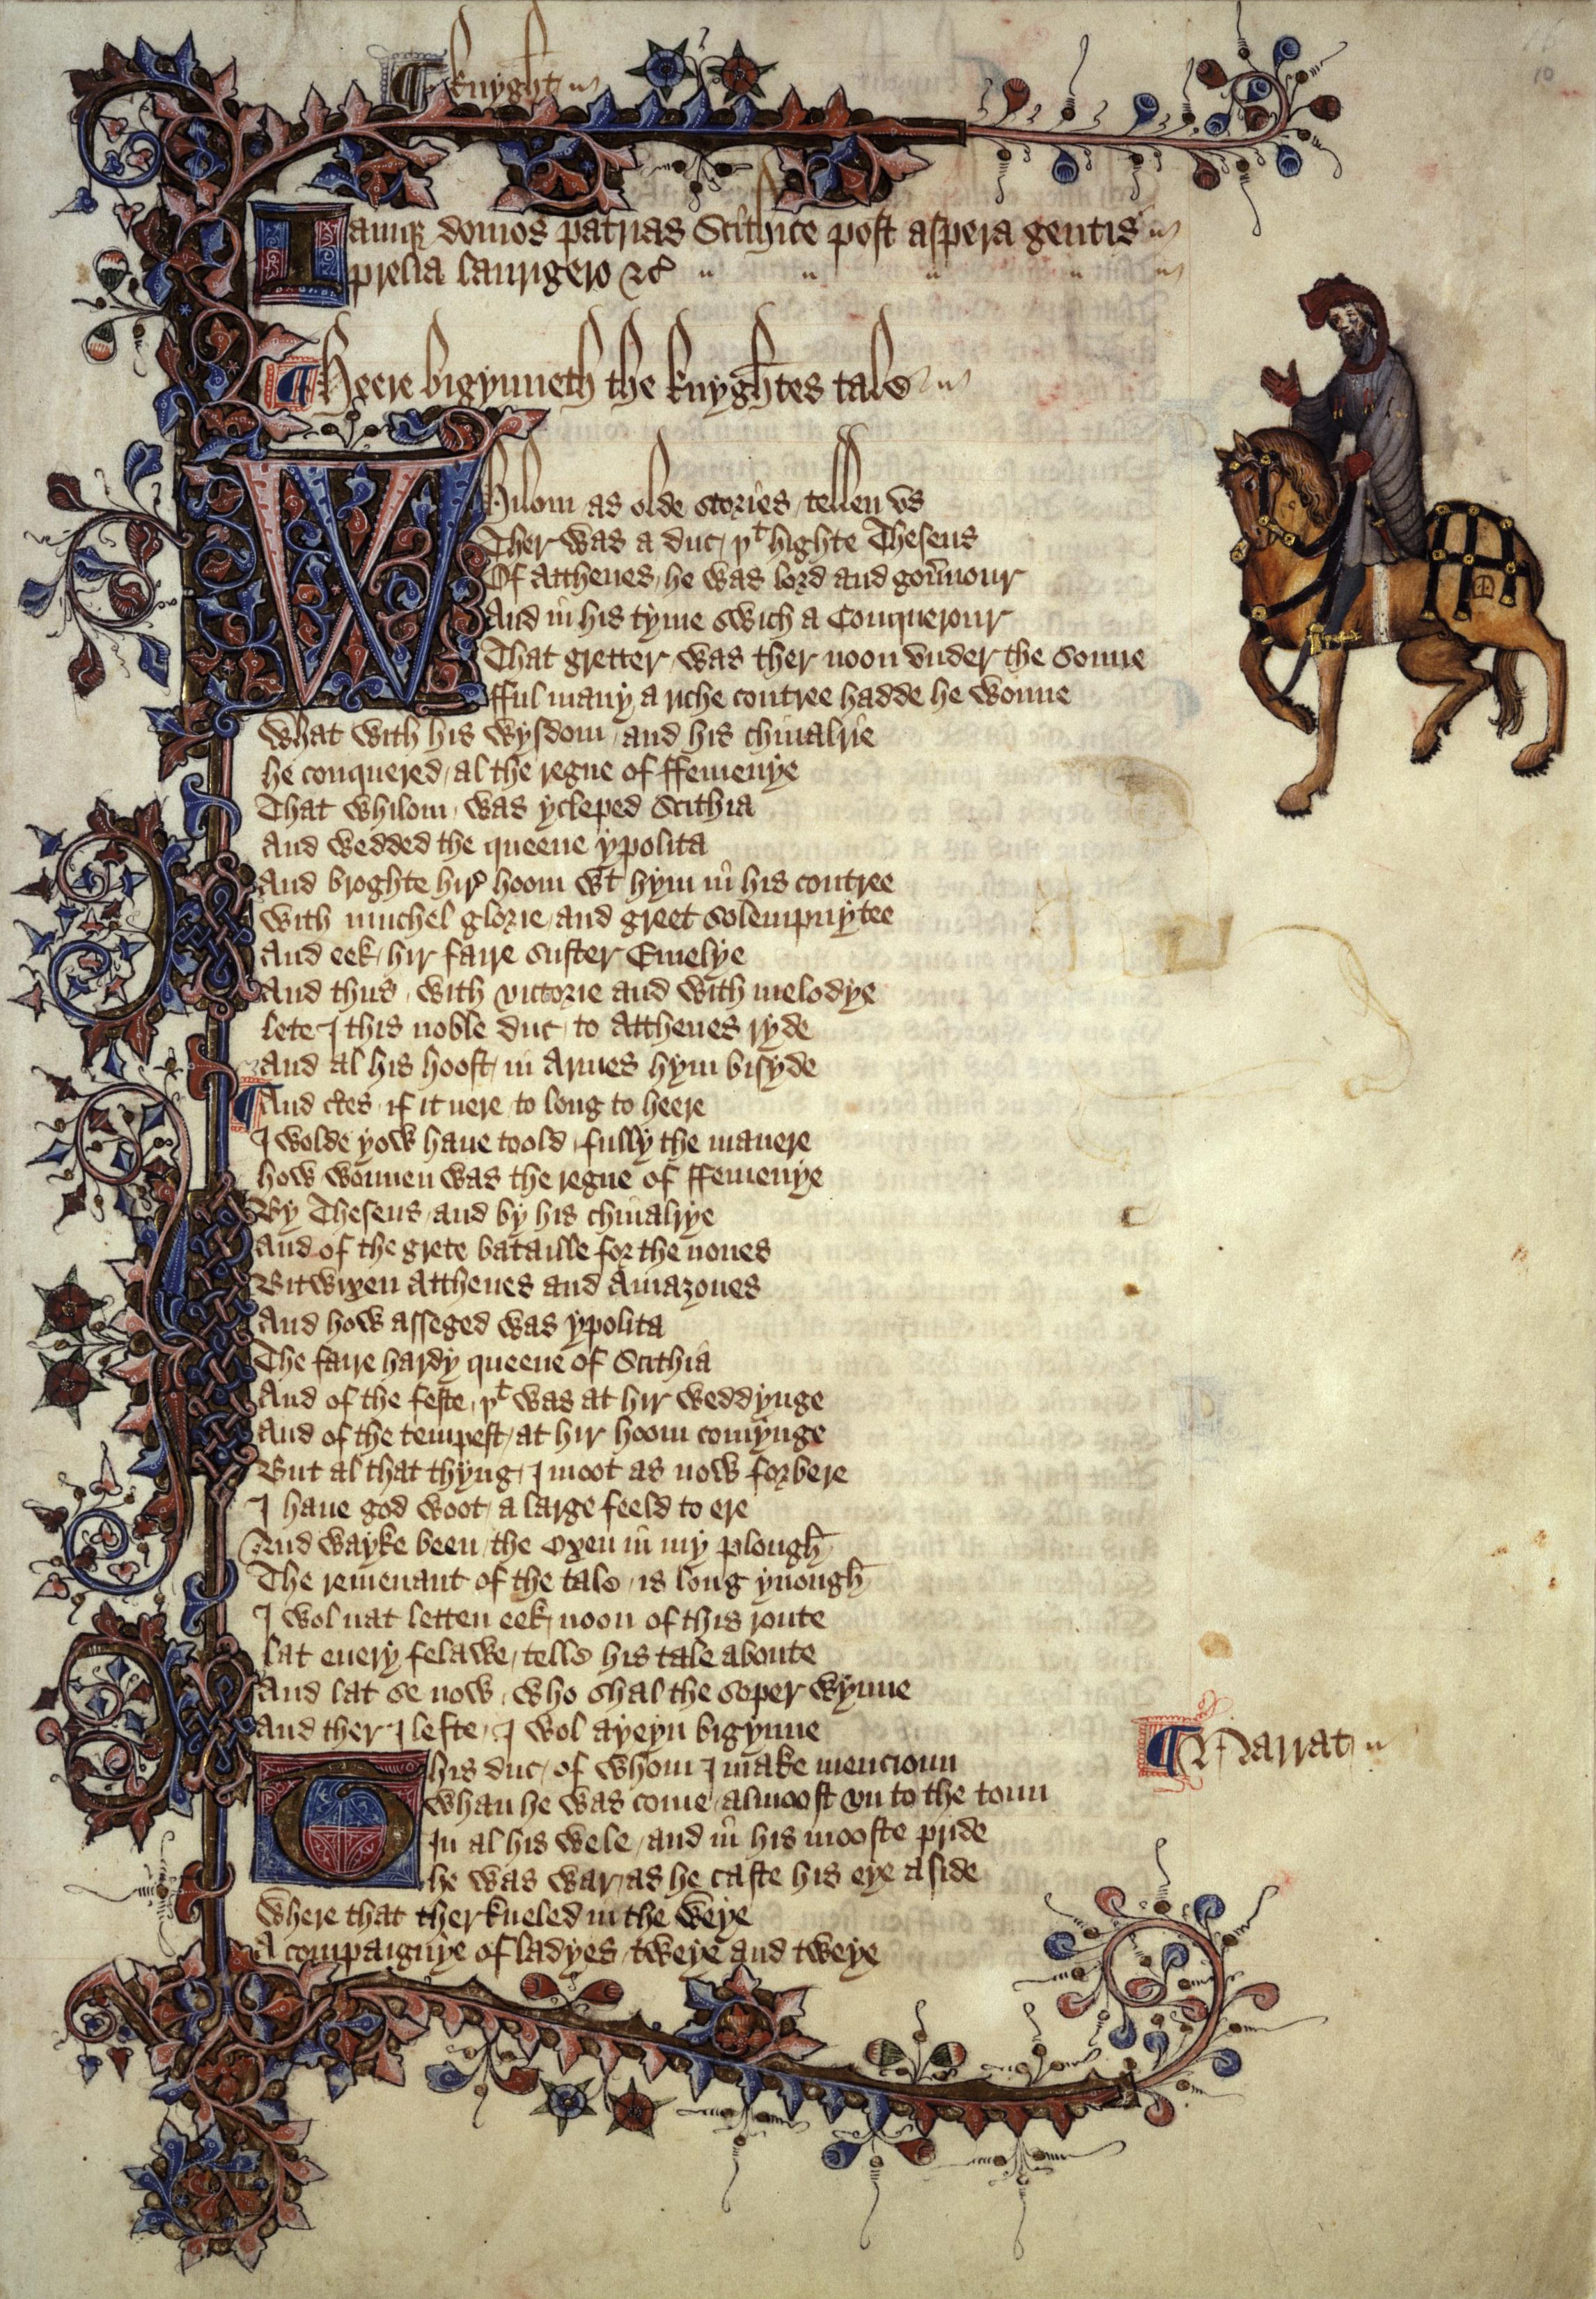 ¶ knyght
Iamqꝫ domos patrias Scithice post aspera gentis
prelia laurigero ⁊c̉
¶ Heere bigynneth the knyghtes tale
Whilom as olde stories / tellen vs
Ther was a duc / þᵗ highte Theseus
Of Atthenes / he was lord and goũnour
And in his tyme swich a Conquerour
That gretter / was ther noon vnder the sonne
fful many a riche contree hadde he wonne
What with his wysdom / and his chiualrie
he conquered / al the regne of ffemenye
That whilom / was ycleped Scithia
And wedded the queene ypolita
And broghte hir̛ hoom wᵗ hym in his contree
With muchel glorie / and greet solempnytee
And eek / hir faire suster Emelye
And thus / with victorie and with melodye
lete I this noble duc / to Atthenes ryde
And al his hoost / in Armes hym bisyde
¶ And c̉tes / if it nere to long to heere
I wolde yow haue toold / fully the manere
how wonnen was the regne of ffemenye
By Theseus / and by his chiualrye
And of the grete bataille for the nones
Bitwixen Atthenes and Amazones
And how asseged was ypolita
The faire hardy queene of Scithia
And of the feste / þᵗ was at hir weddynge
And of the tempest / at hir hoom comynge
But al that thyng / I moot as now forbere
I haue god woot / a large feeld to ere
And wayke been / the Oxen in my plough̄
The remenant of the tale / is long ynough̄
I wol nat letten eek / noon of this route
lat euery felawe / telle his tale aboute
And lat se now / who shal the soper wynne
And ther I lefte / I wol ayeyn bigynne
¶ Narrat
This duc / of whom I make mencioun
Whan he was come / almoost vn to the toun
In al his wele / and in his mooste pride
he was war / as he caste his eye aside
Where that ther kneled in the weye
A compaignye of ladyes / tweye and tweye
10